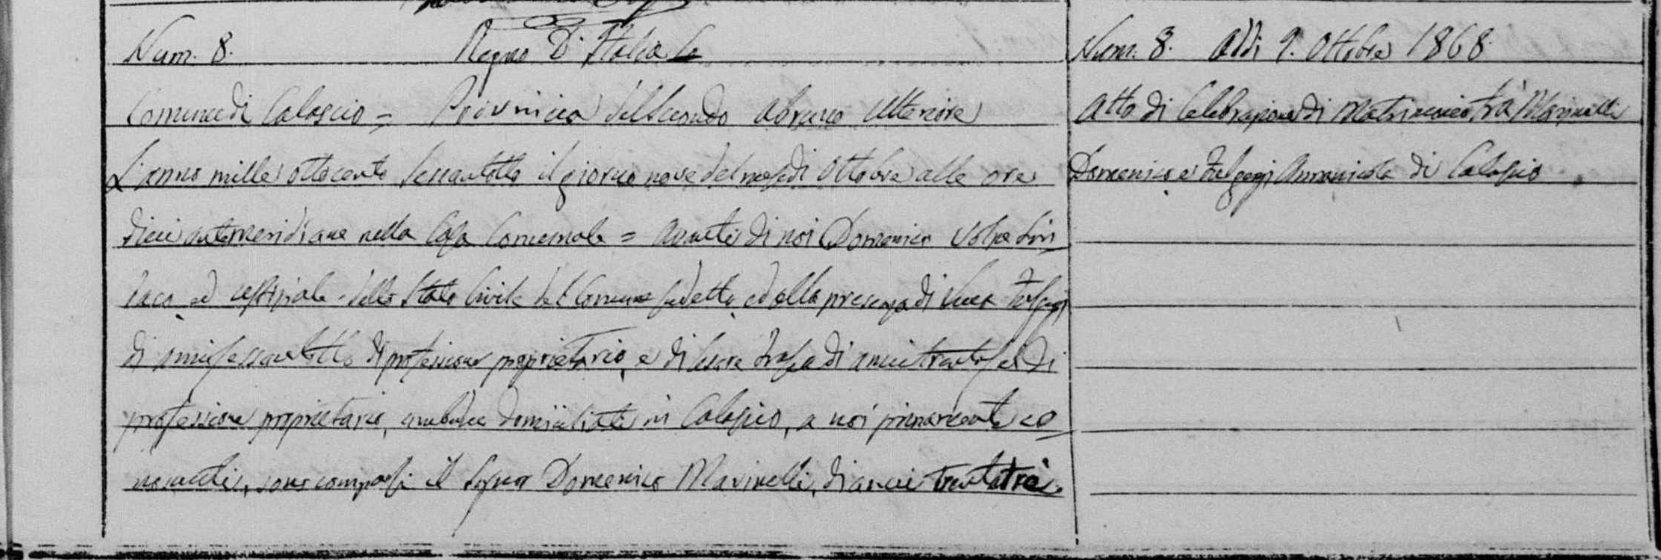 Num. 8. Regno D'Italia
Comune di Calascio = Provincia del Secondo Abruzzo Ulteriore
L'anno mille ottocento sessantotto il giorno nove del mese di Ottobre alle ore
dieci antemeridiane nella Casa Comunale = Avanti di noi Domenico Volpe Sin
daco ed uffiziale dello Stato Civile del Comune sudetto, ed alla presenza di Luca Fulgegi
di anni sessantotto di professione proprietario, e di Cesare di anni trentasei di
professione proprietario, ambidue domiciliati in Calascio, a noi pienamente co
nosciuti, sono comparsi il Signor Domenico Marinelli, di anni trentatrè
Num. 8. Addì 9. Ottobre 1868.
Atto di Celebrazione di Matrimonio trà Marinelli
Domenico e Fulgegi Annanicola di Calascio